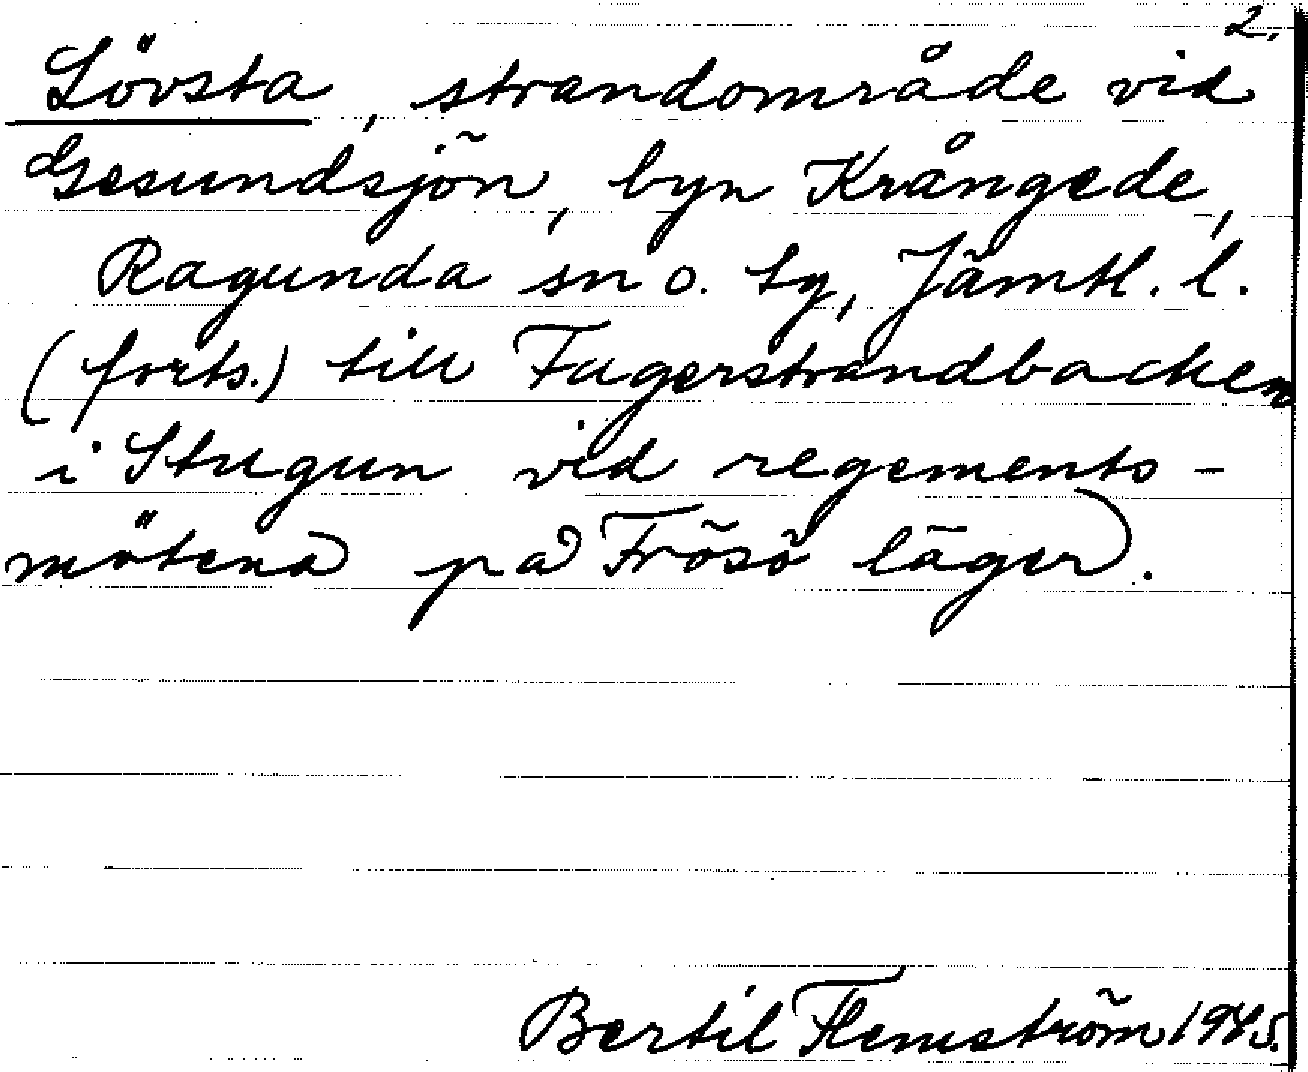 2.
Lövsta, strandområde vid
Gesundsjön, byn Krångede,
Ragunda sn o. tg, Jämtl. l.
(forts.) till Fagerstrandbacken
i Stugun vid regements-
mötena på Frösö läger).
Bertil Flemström 1945.